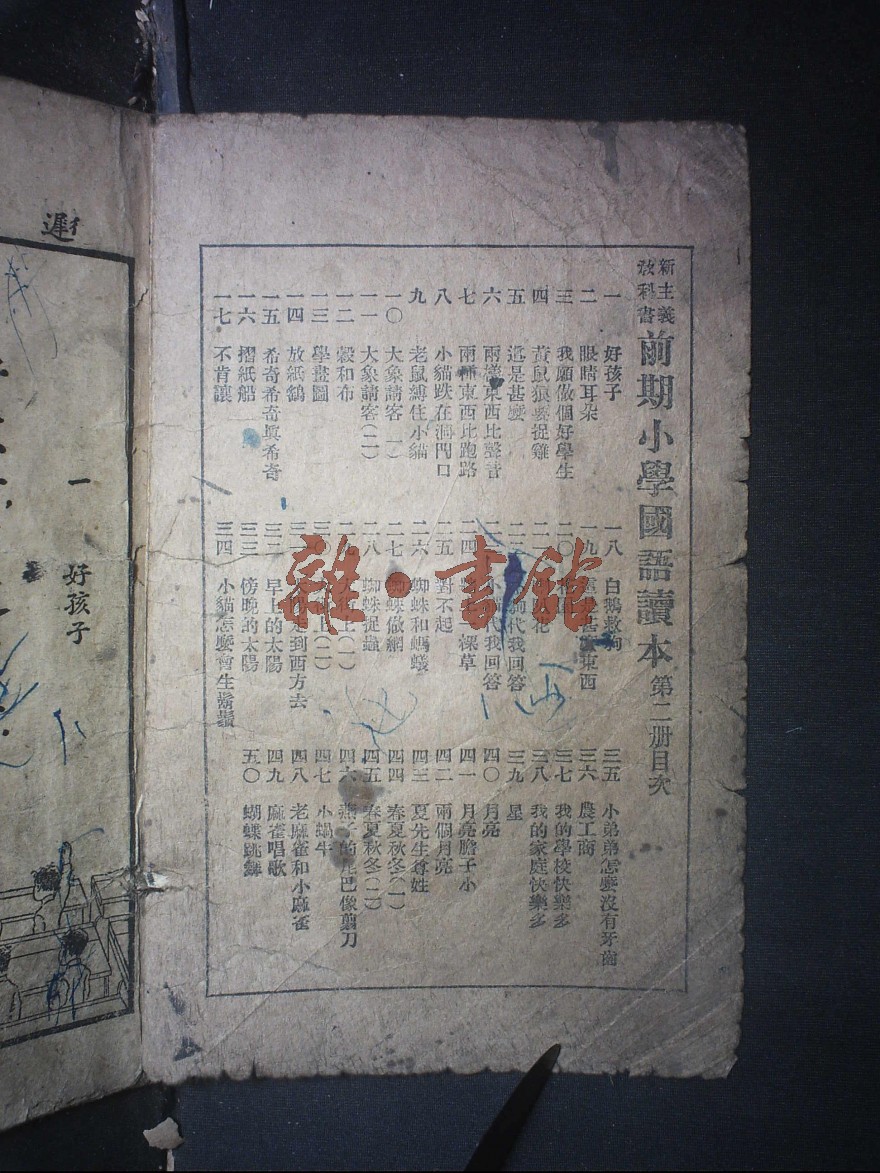 新主義
教科書
前期小學國語讀本 第二册目次
一 好孩子
二 眼睛耳朶
三 我願做個好學生
四 黃鼠狼要捉雞
五 這是甚麽
六 兩樣東西比聲音
七 兩種東西比跑路
八 小貓跌在洞門口
九 老鼠縛住小貓
一〇 大象請客(一)
一一 大象請客(二)
一二 穀和布
一三 學畫圖
一四 放紙鶴
一五 希奇希奇眞希奇
一六 摺紙船
一七 不肯讓
一八 白鵝救狗
一九 甚麽東西
二〇
二
二 代我回答
二 代我回答
二四 一棵草
二五 對不起
二六 蜘蛛和螞蟻
二七 蜘蛛做網
二八 蜘蛛捉蟲
二九 上(一)
三〇 上(二)
三一 走到西方去
三二 早上的太陽
三三 傍晚的太陽
三四 小貓怎麽會生鬍鬚
三五 小弟弟怎麽沒有牙齒
三六 農工商
三七 我的學校快樂多
三八 我的家庭快樂多
三九 星
四〇 月亮
四一 月亮膽子小
四二 兩個月亮
四三 夏先生尊姓
四四 春夏秋冬(一)
四五 春夏秋冬(二)
四六 燕子的尾巴像剪刀
四七 小蝸牛
四八 老麻雀和小麻雀
四九 麻雀唱歌
五〇 蝴蝶跳舞
雜·書館
遲
一 好孩子